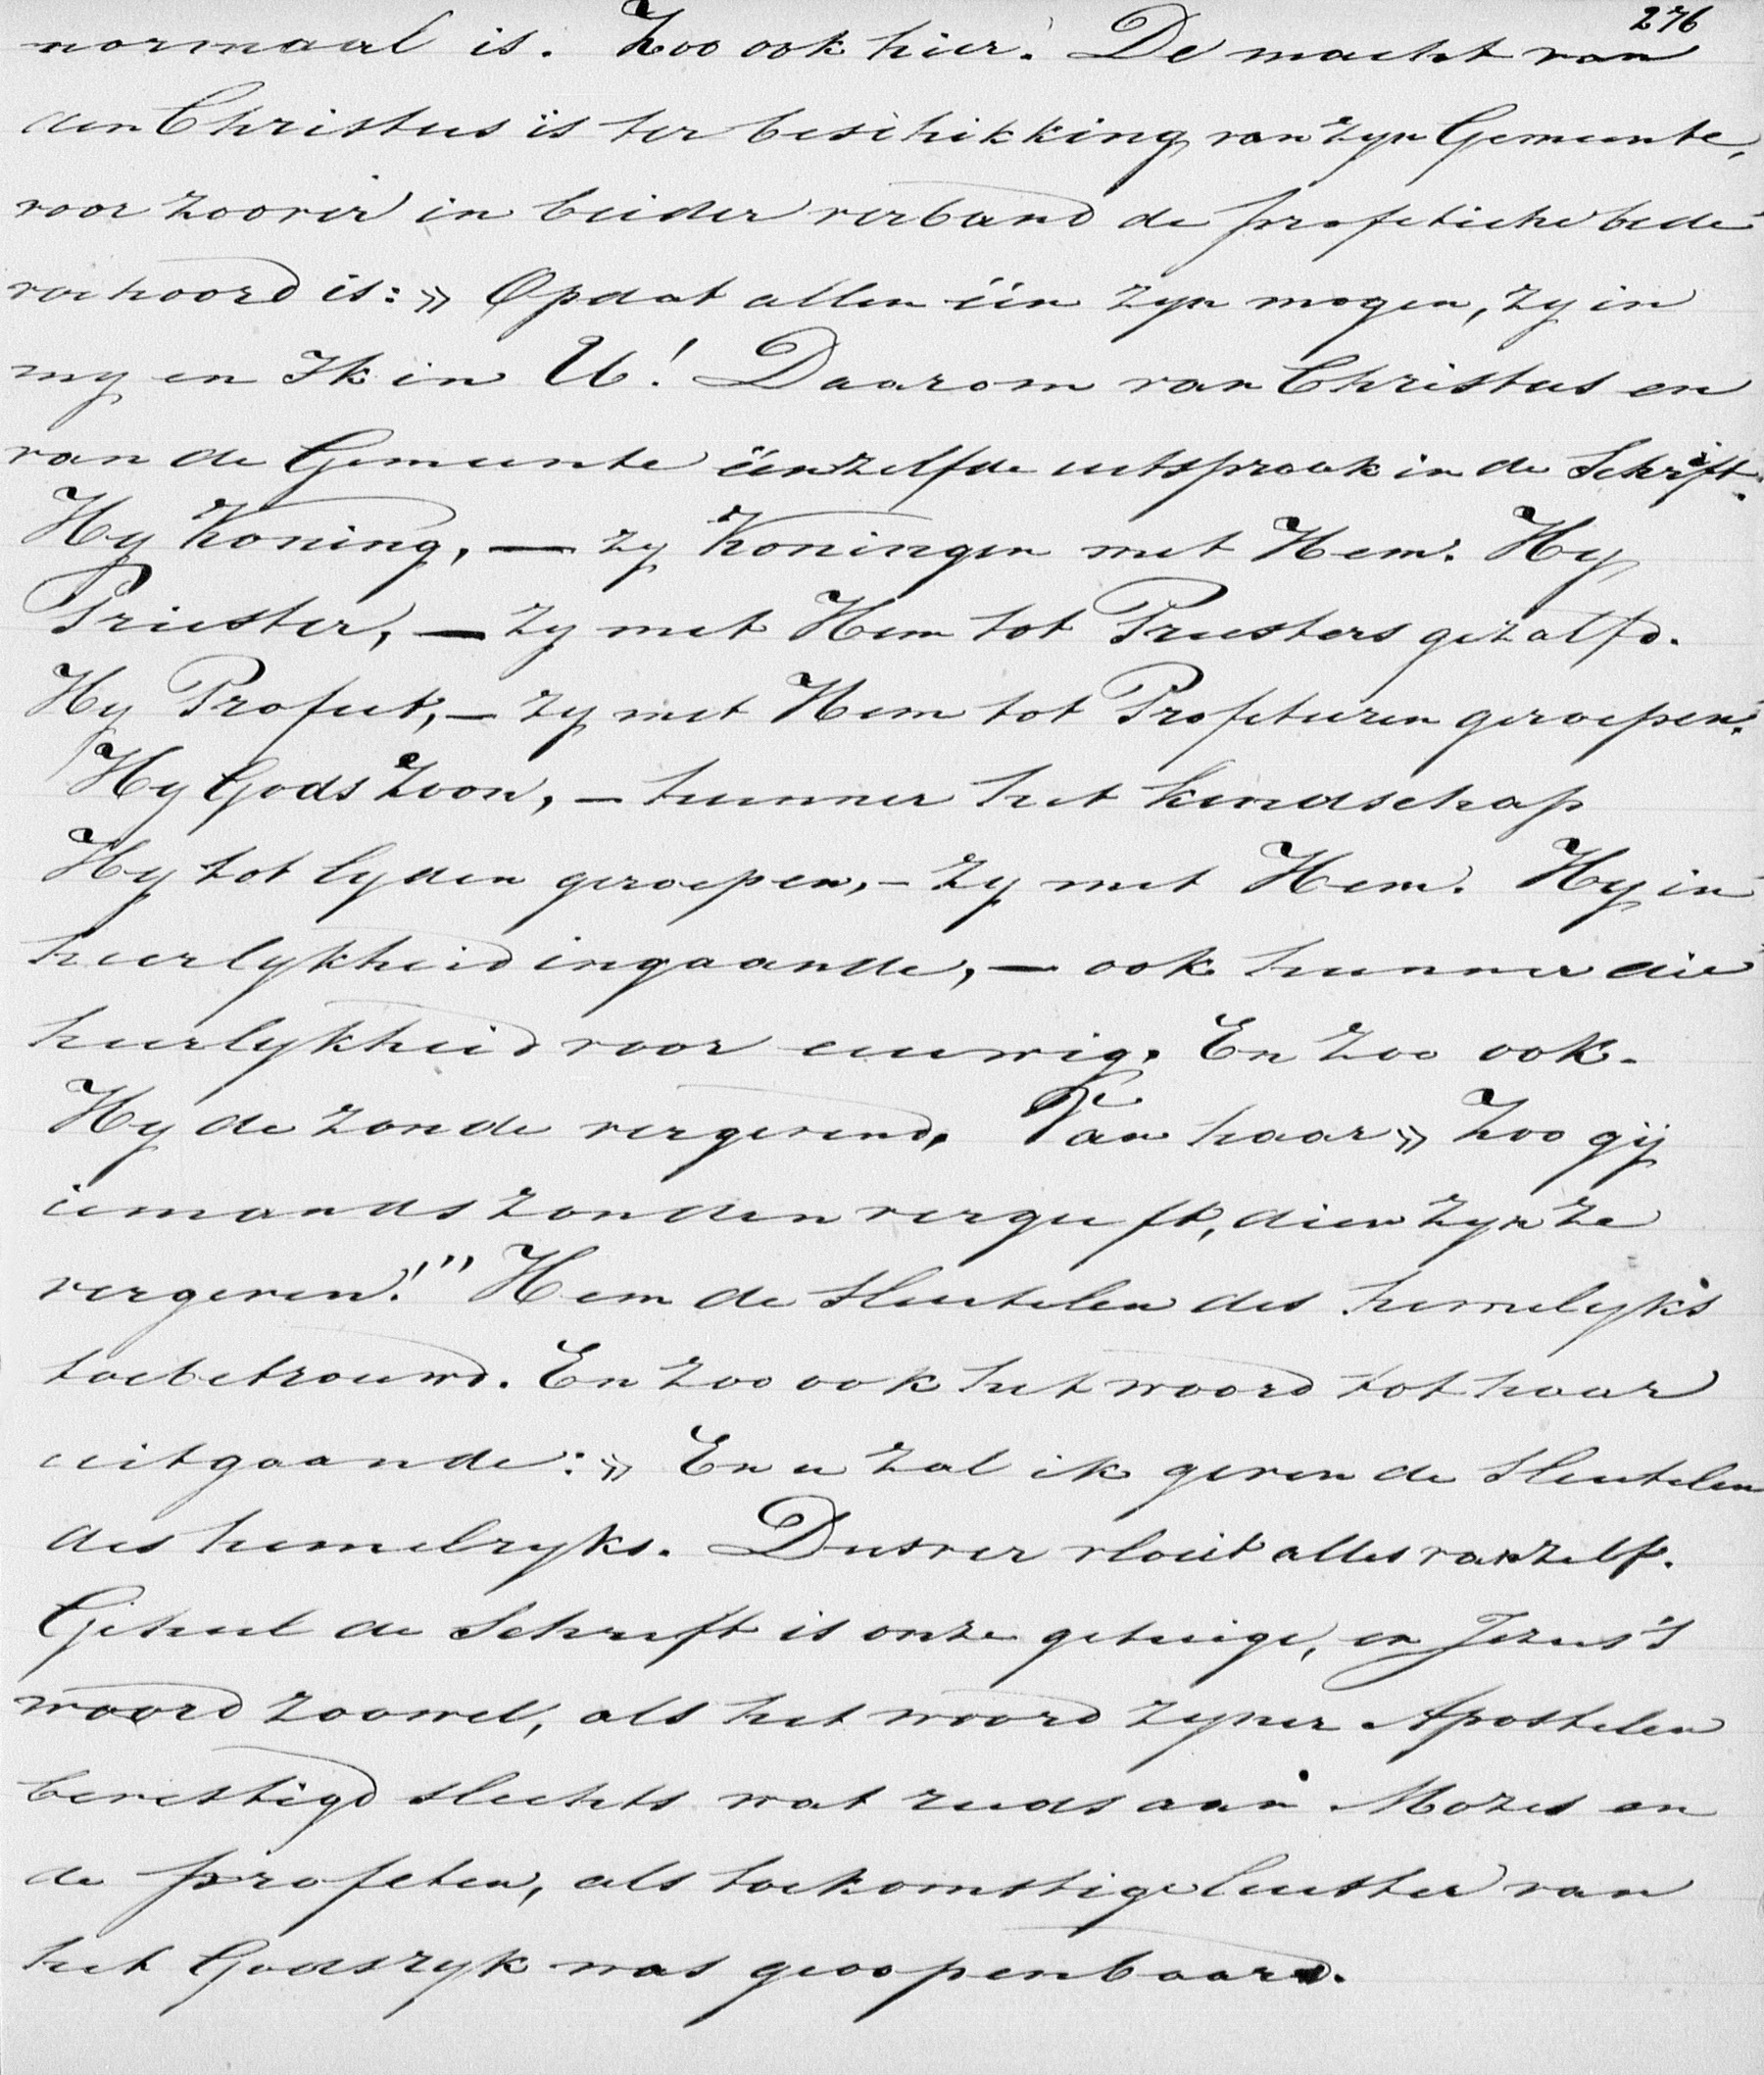 276
normaal is. Zoo ook hier. De macht van
den Christus is ter beschikking van zyn Gemeente,
voor zoover in beider verband de profetiche bede
verhoord is: » Opdat allen één zyn mogen, zy in
my en Ik in U! Daarom van Christus en
van de Gemeente éénzelfde uitspraak in de Schrift.
Hy Koning, — zy Koningen met Hem. Hy
Priester, — zy met Hem tot Priesters gezalfd.
Hy Profeet, — zy met Hem tot Profeteeren geroepen.
Hy Gods Zoon, — hunner het kindschap
Hy tot lyden geroepen, — zy met Hem. Hy in
heerlykheid ingaande, — ook hunner die
heerlykheid voor eeuwig. En zoo ook.
Hy de zonde vergevend. Van haar » Zoo gij
iemands zonden vergeeft, dien zyn ze
vergeven!" Hem de sleutelen des hemelyks
toebetrouwd. En zoo ook het woord tot haar
uitgaande: » En u zal ik geven de sleutelen
des hemelryks. Dusver vloeit alles vanzelf.
Geheel de Schrift is onze getuige, en Jezus's
woord zoowel, als het woord zyner Apostelen
bevestigd slechts wat reeds aan Mozes en
de profeten, als toekomstige luister van
het Godsryk was geoopenbaard.